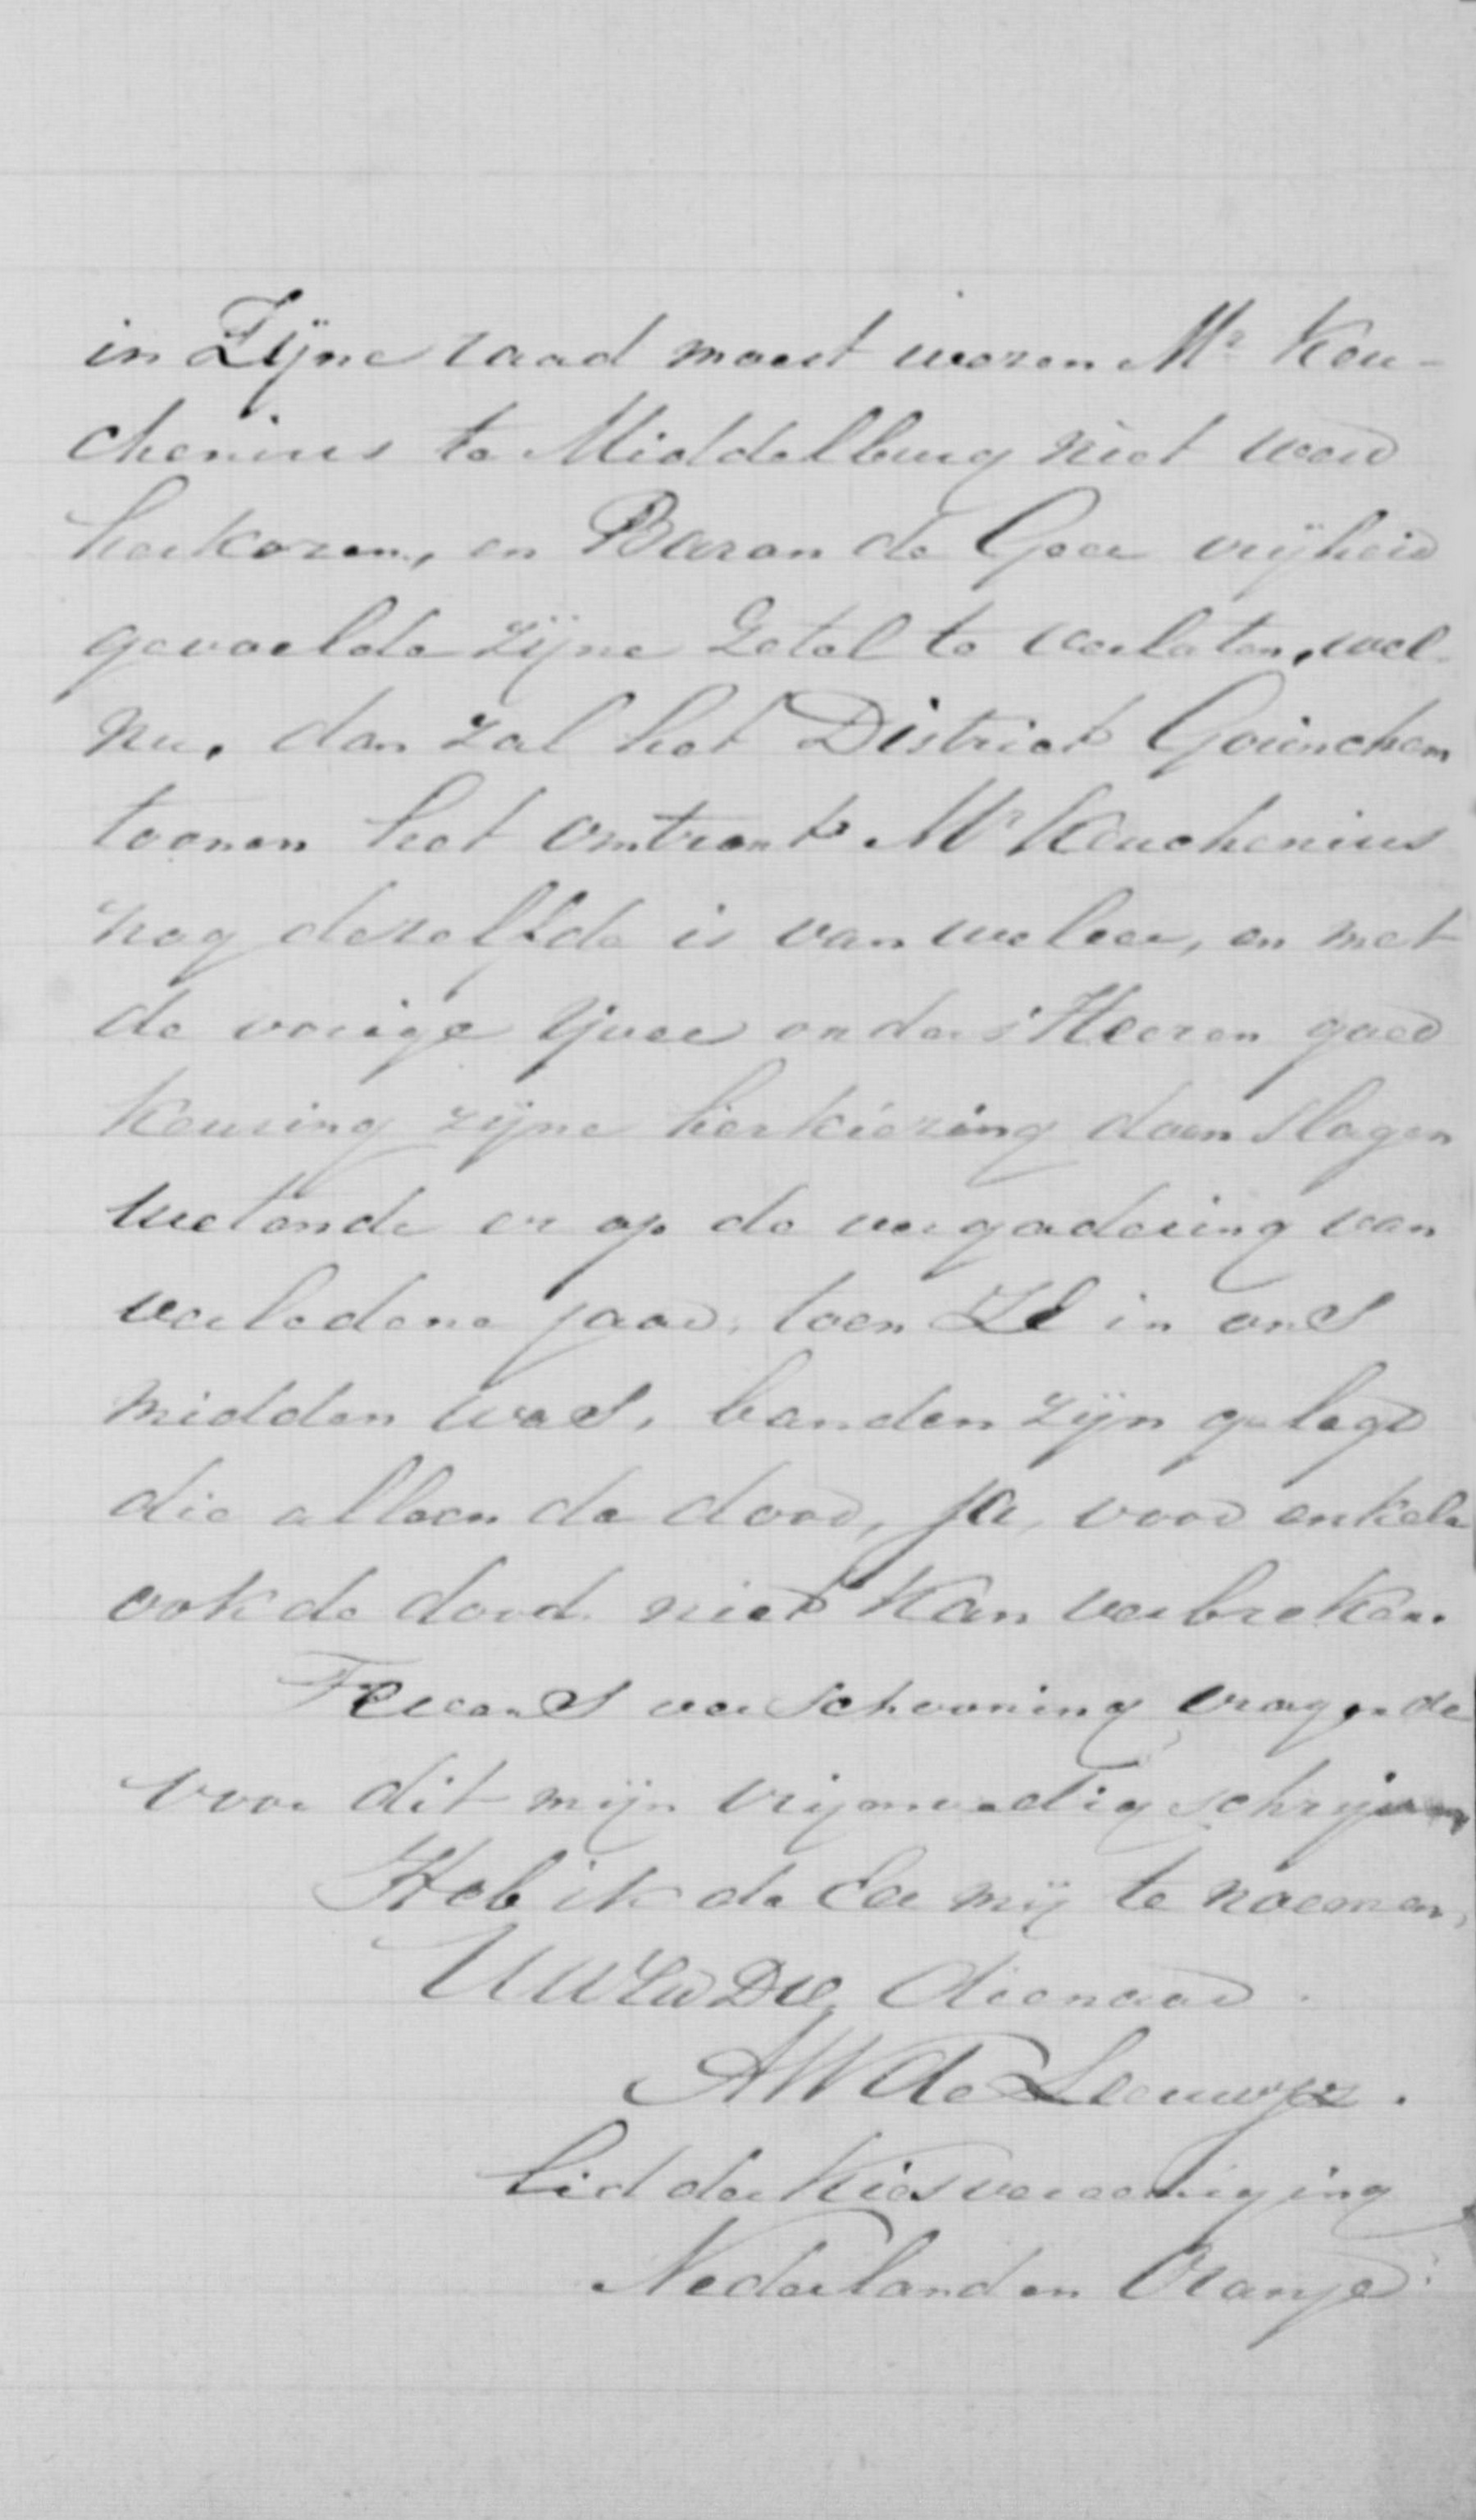 in Zijne raad moest wezen Mr Keu-
chenius te Middelburg niet werd
herkozen, en Baron de Geer vrijheid
gevoelde zijne Zetel te verlaten, wel-
nu, dan zal het District Gorinchem
toonen het omtrent Mr Keuchenius
nog dezelfde is van weleer, en met
de vorige ijver onder s'Heeren goed
keuring zijne herkiezing doen slagen
wetende er op de vergadering van
verledene jaar, toen ZE in ons
midden was, banden zijn gelegd
die alleen de dood, ja, voor enkele
ook de dood niet kan verbreken.
Tevens verschooning vragende
voor dit mijn vrijmoedig schrijven
Heb ik de Eer mij te noemen,
UWEd Dw, dienaar.
AW de Leeuw Jz.
Lid der Kiesvereeniging
Nederland en Oranje.